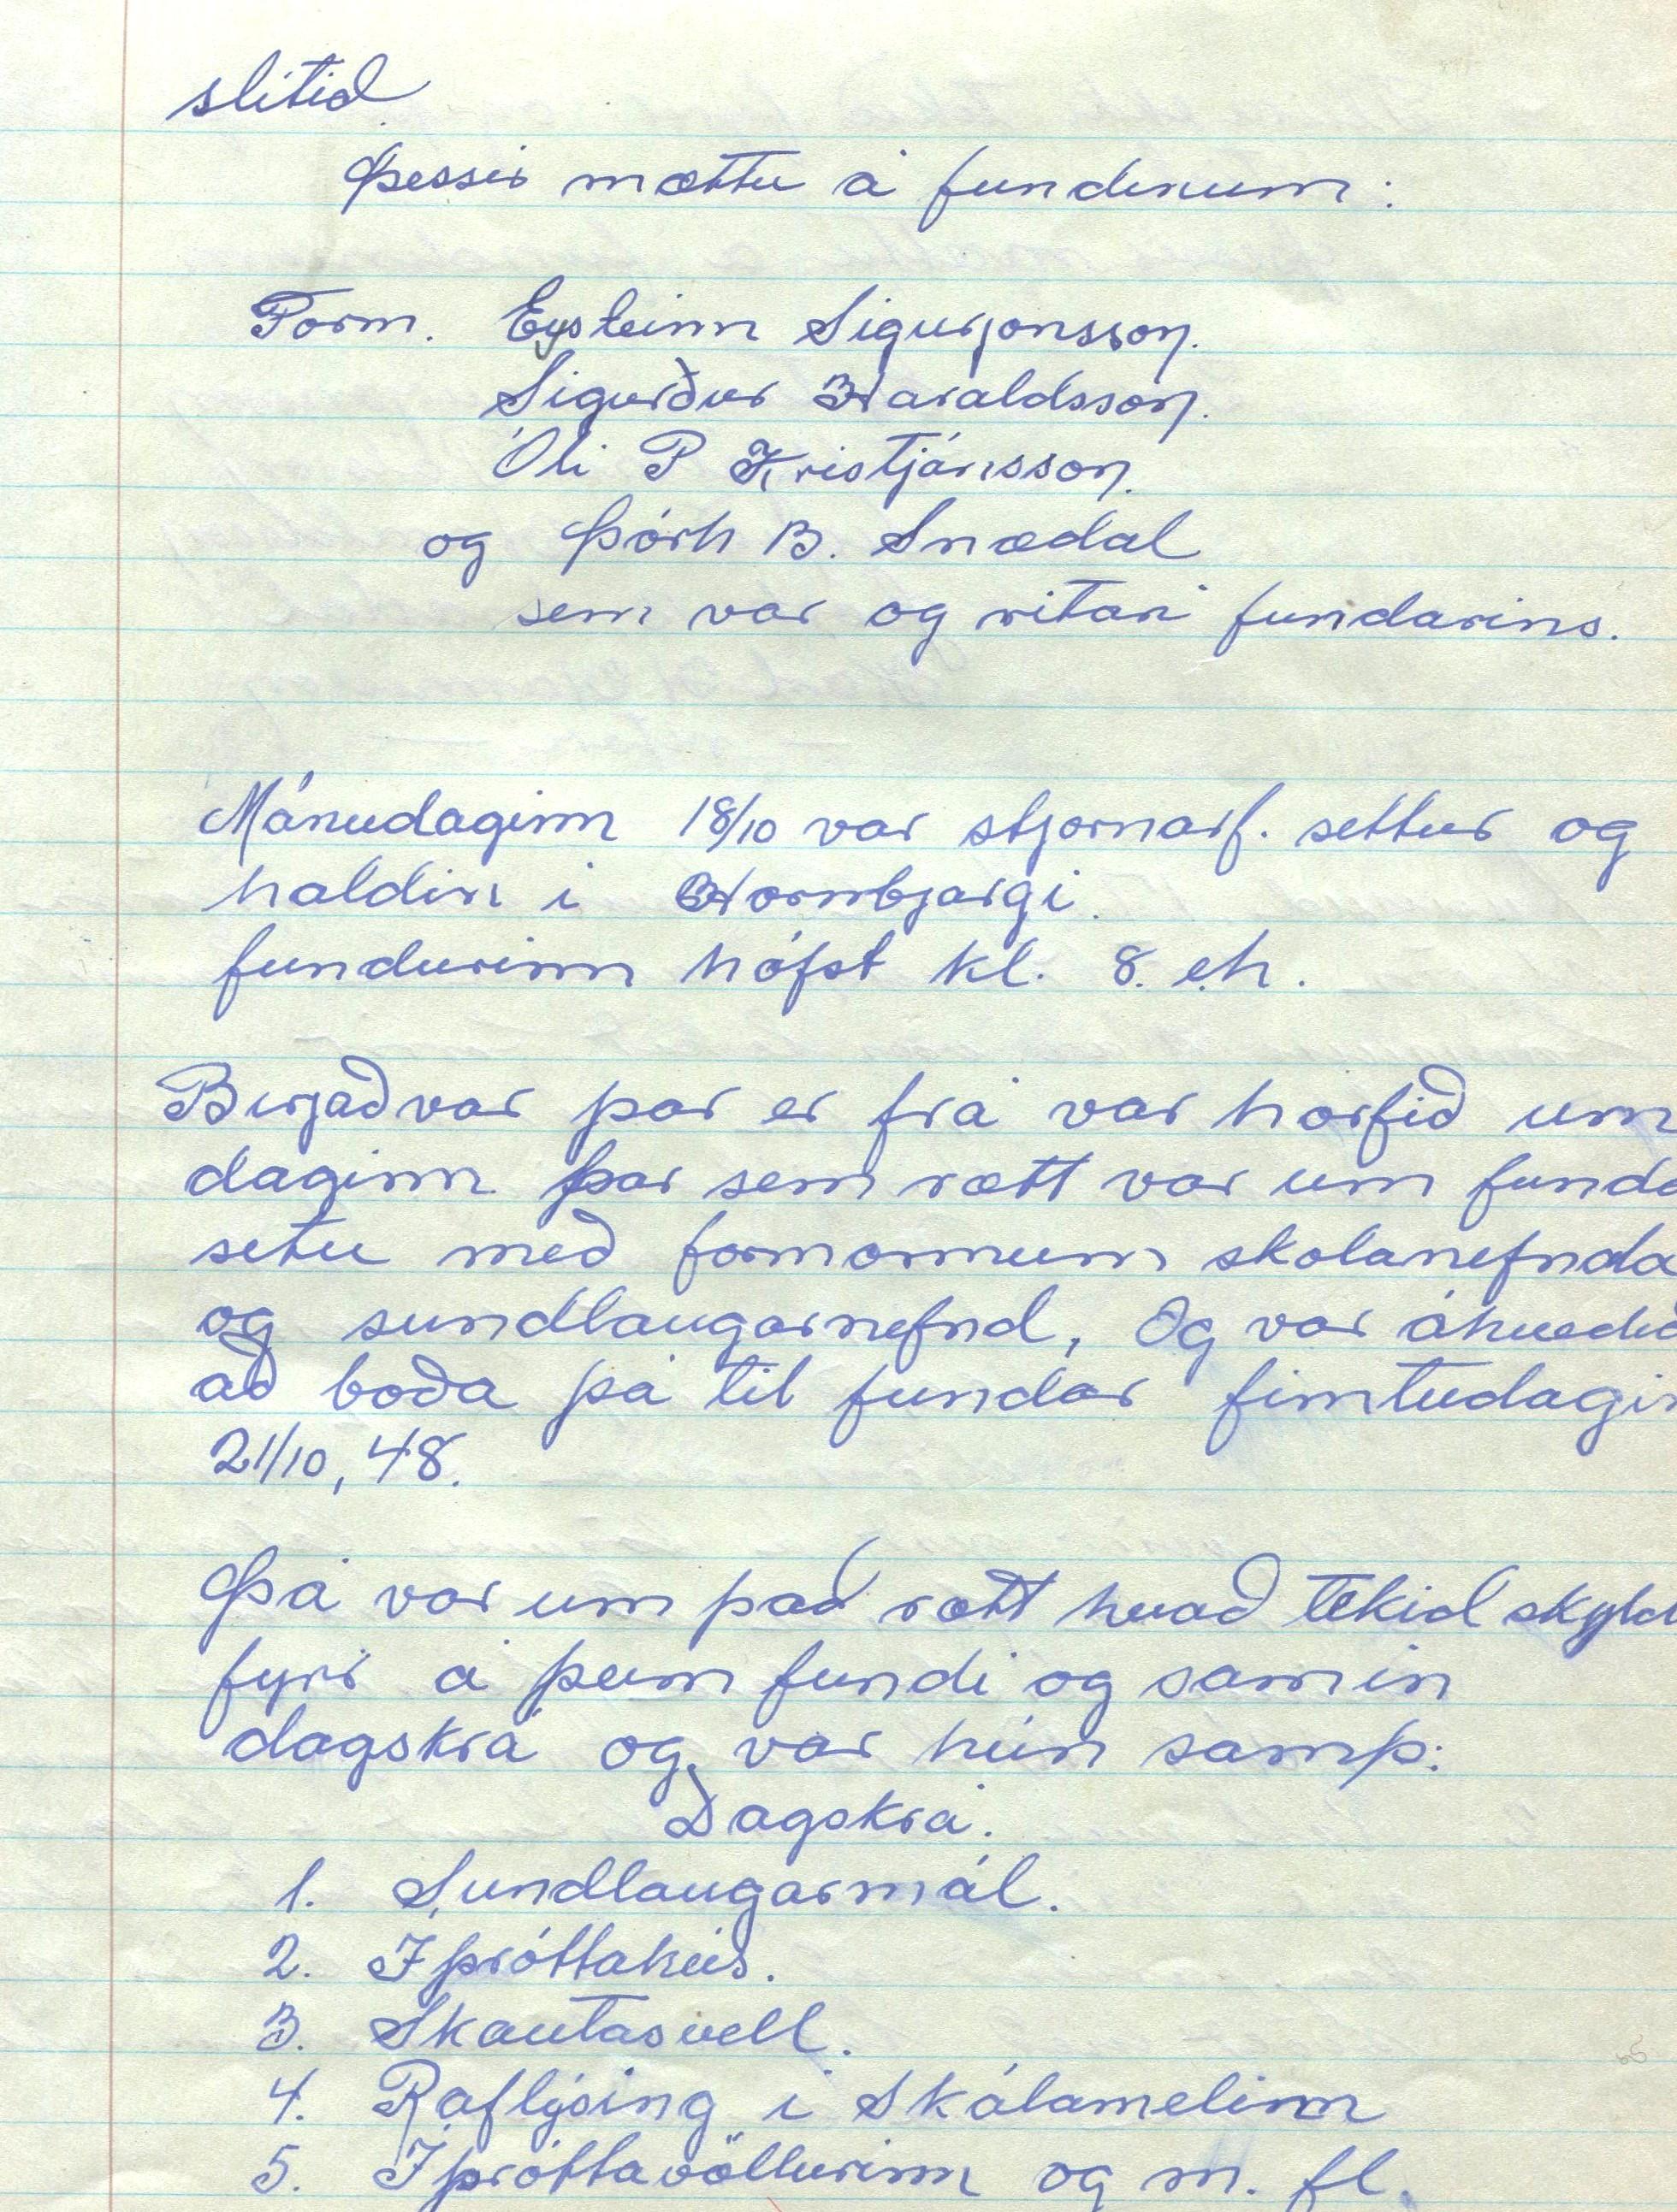 slitid
Þessir mættu á fundinum:
Form. Eysteinn Sigurjonsson.
Sigurður Haraldsson.
Óli P Kristjánsson.
og Þórh B. Snædal
sem var og ritari fundarins.
Mánudaginn 18/10 var stjornarf. settur og
haldin i Hornbjargi.
fundurinn hófst kl. 8. e.h.
Byrjað var þar er frá var horfið um
daginn þar sem rætt var um funda
setu með formonnum skolanefnda
og sundlaugarnefnd, Og var ákvedid
að boða þá til fundar fimtudagin
21/10, 48.
Þá var um það rætt hvað tekid skyld
fyrir á þeim fundi og samin
dagskrá og var hún samþ:
Dagskrá.
1. Sundlaugarmál.
2. Íþróttahús.
3. Skautasvell.
4. Raflýsing i Skálamelinn
5. Íþróttavöllurinn og m. fl.